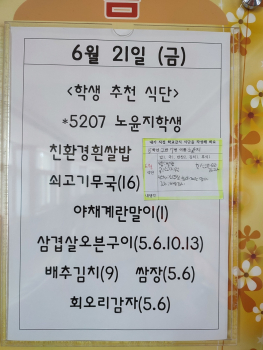 6월 21일 (금)
<학생 추천 식단>
*5207 노윤지학생
친환경흰쌀밥
쇠고기무국(16)
야채계란말이(1)
삼겹살오븐구이(5.6.10.13)
배추김치(9) 쌈장(5.6)
회오리감자(5.6)